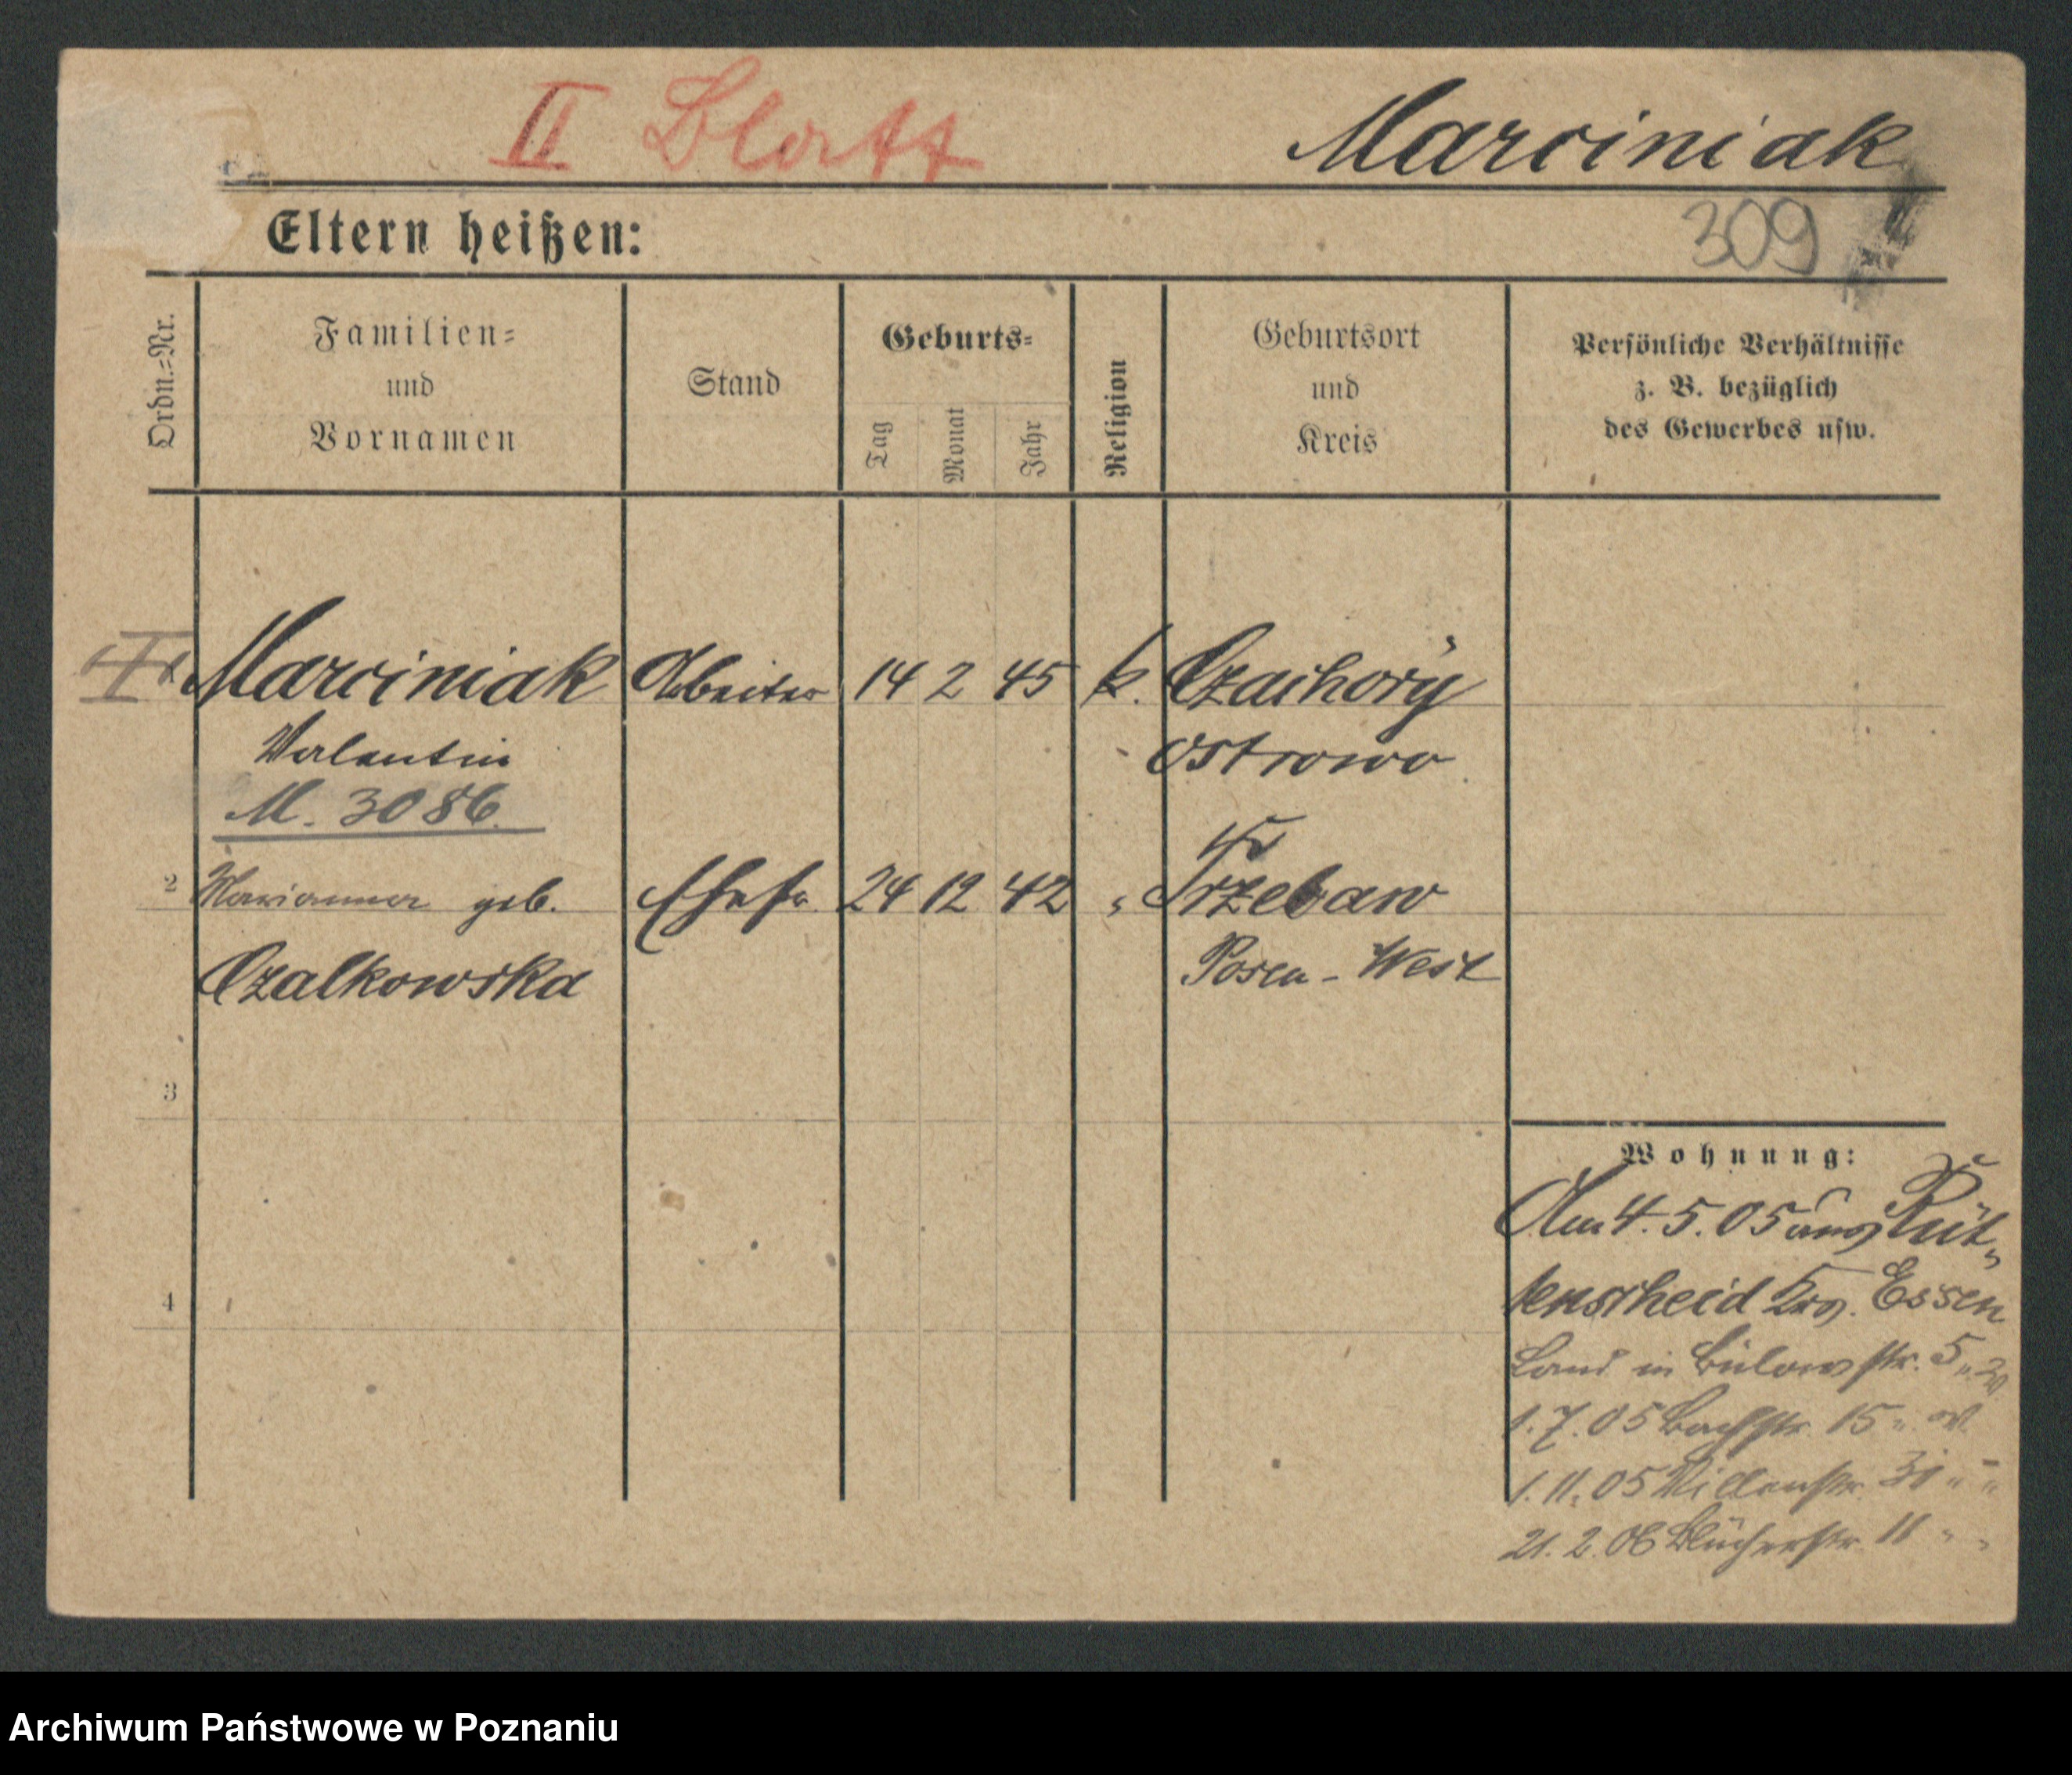 II Blatt Marciniak
Eltern heißen: 309
Ordn.=Nr. Familien= und Vornamen Stand Geburts= Tag Monat Jahr Religion Geburtsort und Kreis Persönliche Verhältnisse z. B. bezüglich des Gewerbes usw.
Marciniak Arbeiter 14 2 45 k. Czachory
Valentin Ostrowo
M. 3086.
2 Marianna geb. Ehefr. 24 12 42 " Trzebaw
Czalkowska Posen-West
3
Wohnung:
Am 4. 5. 05 Rüt-
4 tenscheid Essen
Land in Bülowstr. 5
1. 7. 05 Bachstr. 15
1. 11. 05 Villenstr. 31 " "
21. 2. 06 Blücherstr. 11 " "
Archiwum Państwowe w Poznaniu